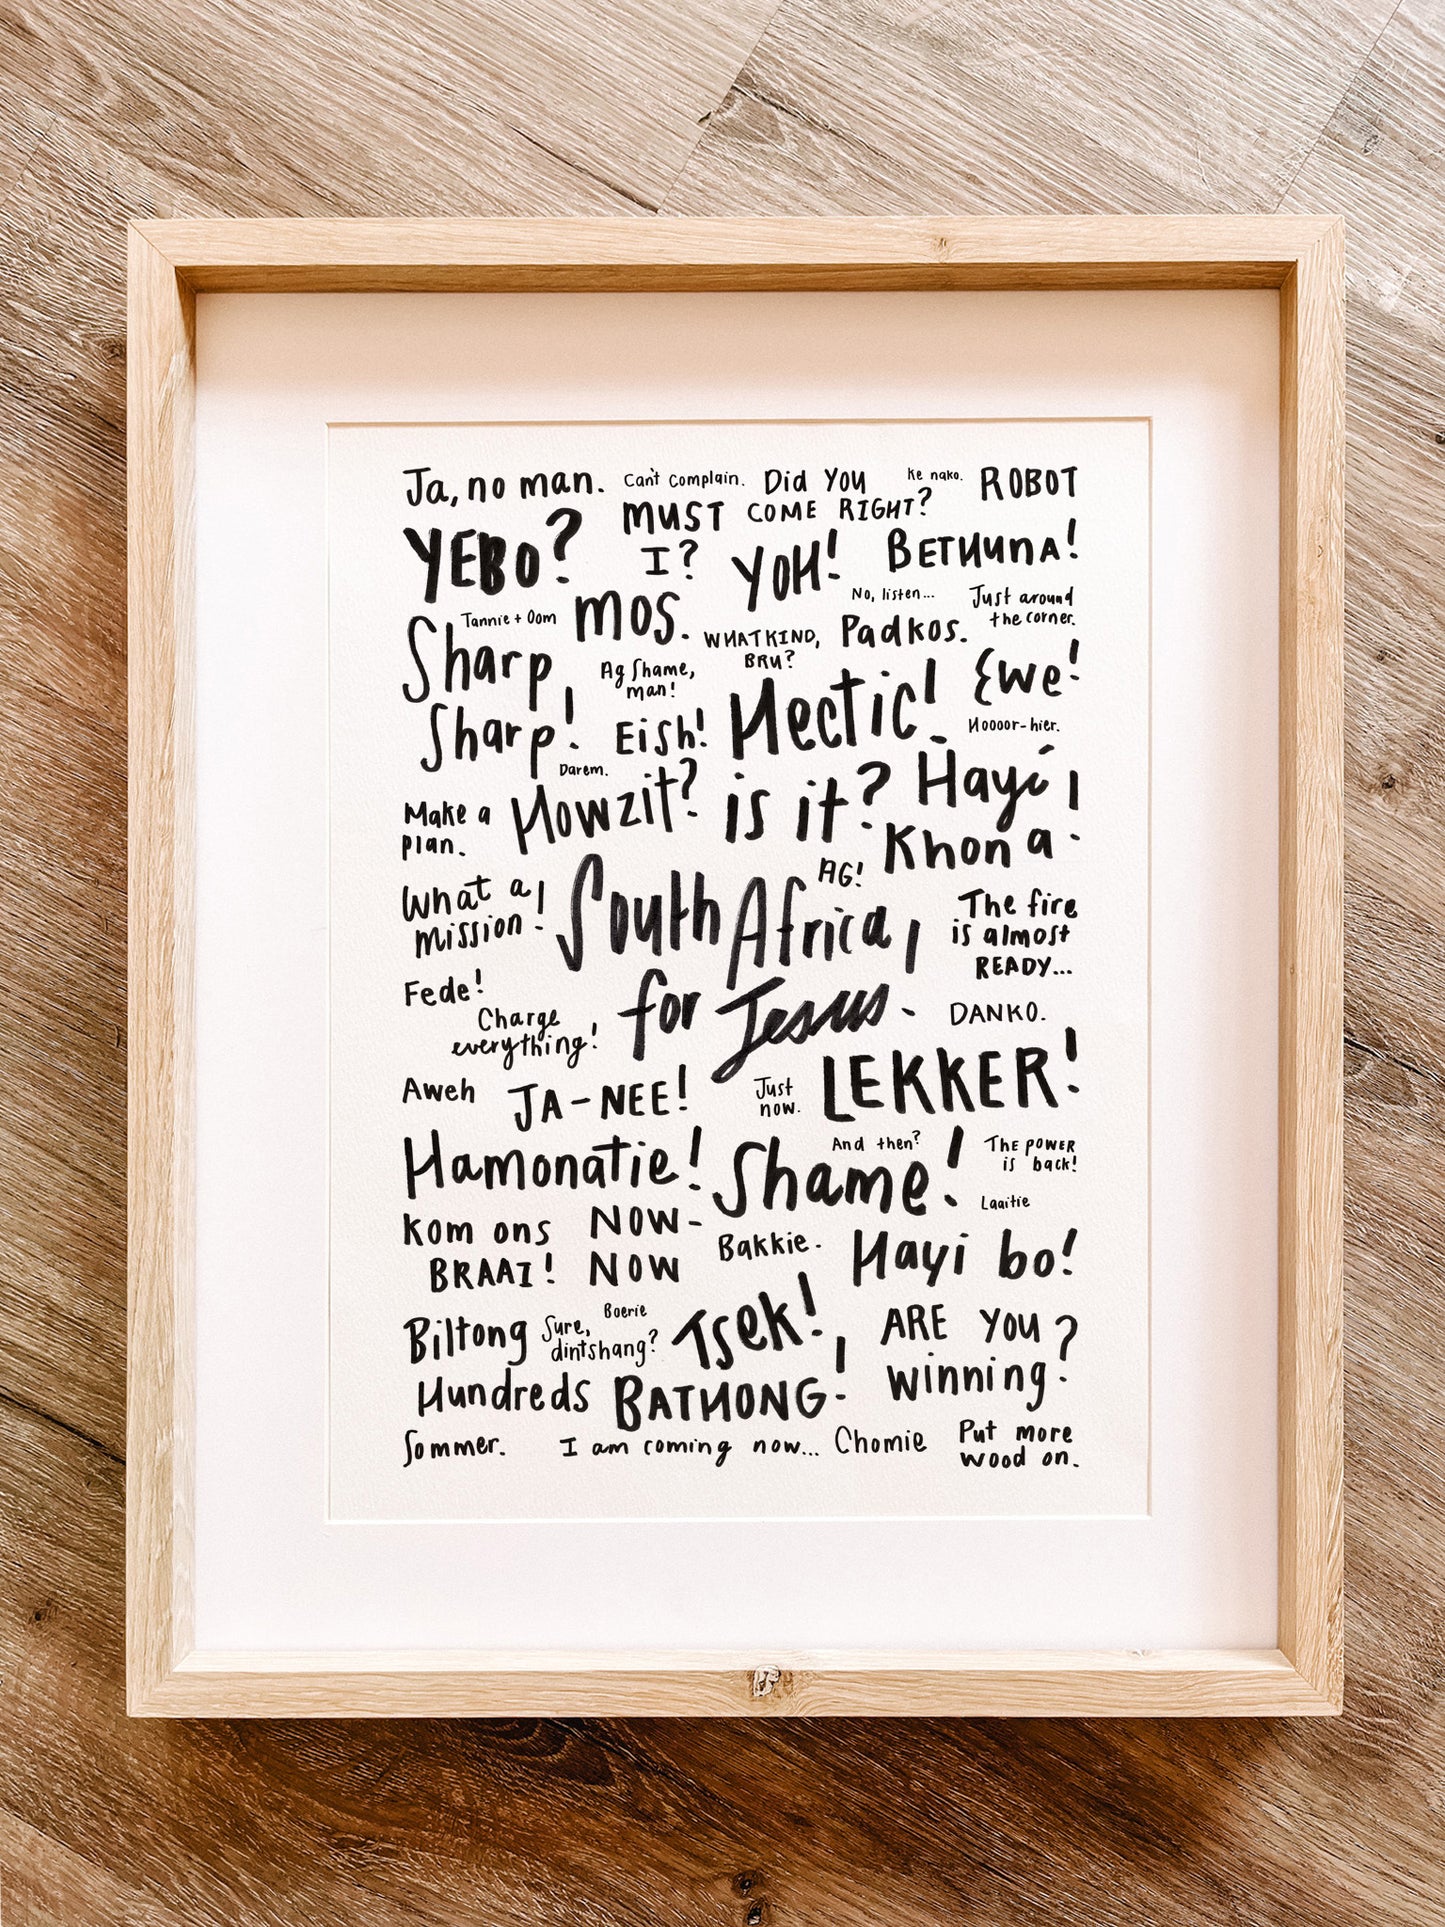 Ja, no man. Can't complain. Did you ke nako. ROBOT
YEBO? MUST COME RIGHT?
I? YOH! BETHUNA!
Tannie + Oom MOS. No, listen... Just around
the corner.
Sharp, WHAT KIND, Padkos.
BRU?
Ag Shame,
man!
Sharp! Eish! Hectic! Ewe!
Hoooor-hier.
Darem.
Make a Howzit? is it? Hayi
plan. Khona!
AG!
What a South Africa, The fire
mission! is almost
READY...
Fede! for Jesus. DANKO.
Charge
everything!
Aweh JA-NEE! Just LEKKER!
now.
Hamonatie! Shame! And then? THE POWER
is back!
Laaitie
Kom ons NOW- Bakkie. Hayi bo!
BRAAI! NOW
Biltong Sure, Boerie Tsek! ARE YOU
dintshang? winning?
Hundreds BATHONG!
Sommer. I am coming now... Chomie Put more
wood on.